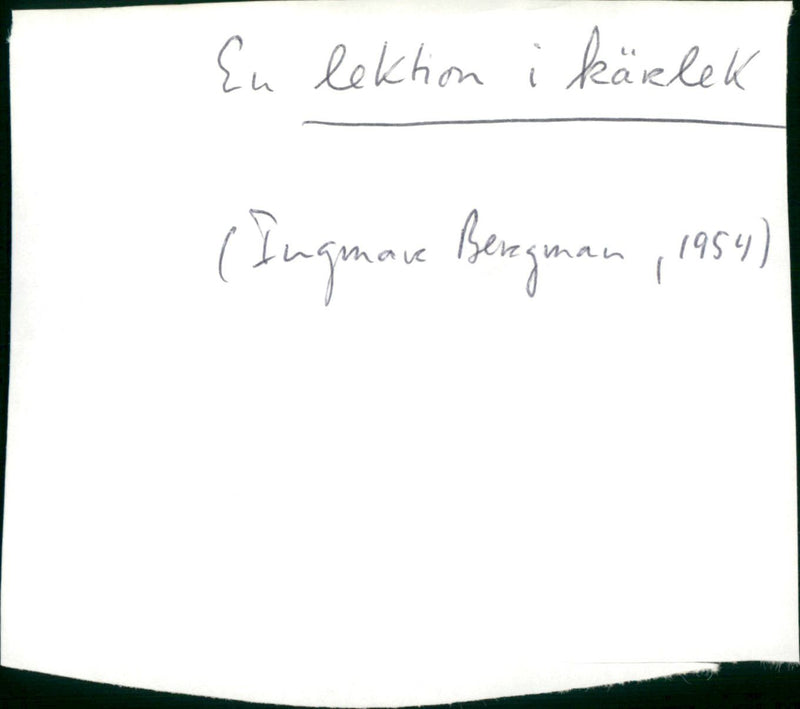 En lektion i kärlek
(Ingmar Bergman, 1954)